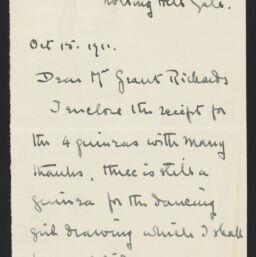 Oct 15. 1911.
Dear Mr Grant Richards
I enclose the reciept for
the 4 guineas with many
thanks, there is still a
guinea for the dancing
girl drawing which I shall